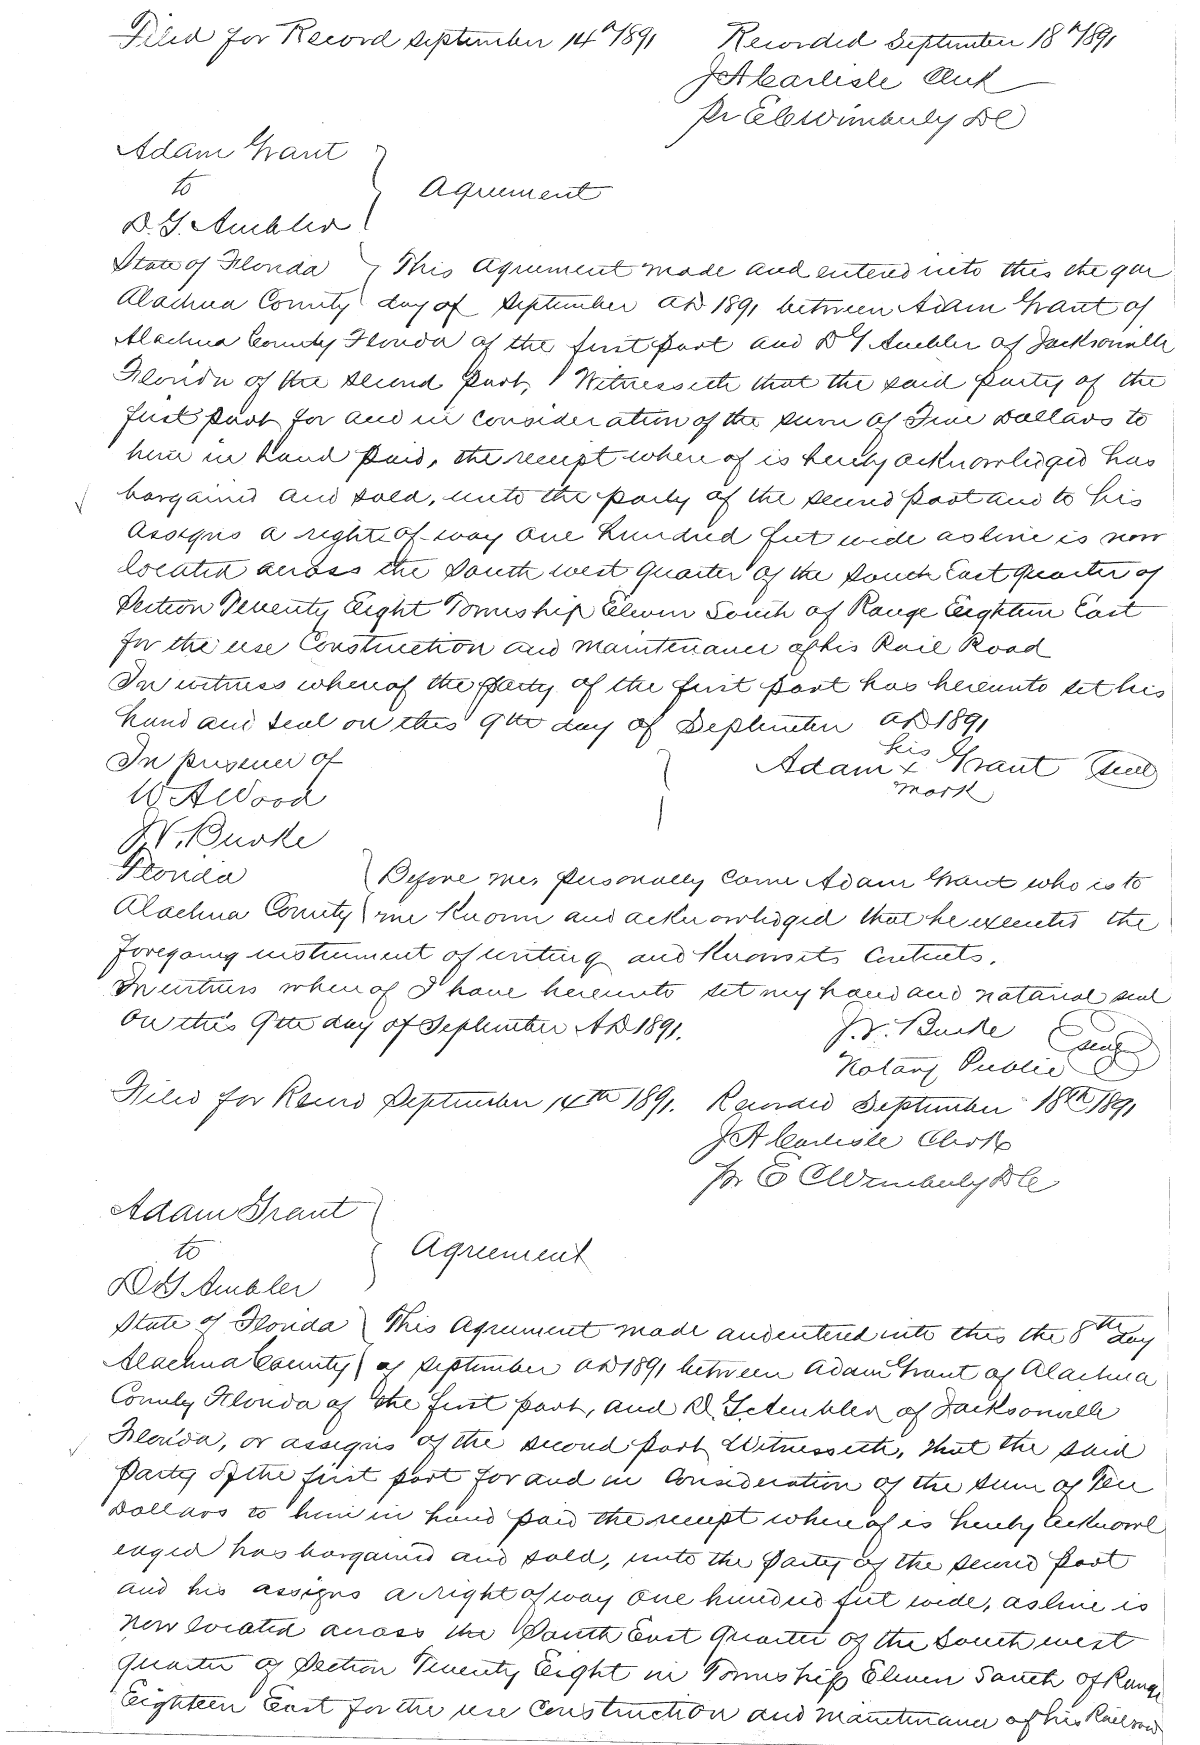 Filed for Record September 14th 1891 Recorded September 18th 1891
J A Carlisle Clerk
Pr E C Wimberly DC
Adam Grant
to } Agreement
D. G. Ambler
State of Florida } This Agreement made and entered into this the 9th
Alachua County day of September AD 1891 between Adam Grant of
Alachua County Florida of the first part and D G Ambler of Jacksonville
Florida of the second part, Witnesseth that the said party of the
first part for and in consideration of the sum of Five Dollars to
him in hand paid, the receipt where of is hereby acknowledged has
bargained and sold, unto the party of the second part and to his
assigns a right of way one hundred feet wide as line is now
located across the South west quarter of the South East quarter of
Section Twenty Eight Township Eleven South of Range Eighteen East
for the use Construction and maintenance of his Rail Road
In witness whereof the party of the first part has hereunto set his
hand and seal on this 9th day of September AD 1891
In presence of } Adam his x mark Grant (seal)
W A Wood
J. W. Burke
Florida } Before me, personally came Adam Grant who is to
Alachua County me known and acknowledged that he executed the
foregoing instrument of writing and knows its contents.
In witness where of I have hereunto set my hand and notarial seal
on this 9th day of September AD 1891. J. W. Burke (seal)
Notary Public
Filed for Record September 14th 1891. Recorded September 18th 1891
J A Carlisle Clerk
pr E C Wimberly D C
Adam Grant
to } Agreement
D G Ambler
State of Florida } This Agreement made and entered into this the 8th day
Alachua County of September AD 1891 between Adam Grant of Alachua
County Florida of the first part, and D. G. Ambler of Jacksonville
Florida, or assigns of the second part Witnesseth, that the said
party of the first part for and in consideration of the sum of Ten
Dollars to him in hand paid the receipt where of is hereby acknowl
edged has bargained and sold, unto the party of the second part
and his assigns a right of way one hundred feet wide, as line is
now located across the South East quarter of the South west
quarter of Section Twenty Eight in Township Eleven South of Range
Eighteen East for the use construction and maintenance of his Railroad